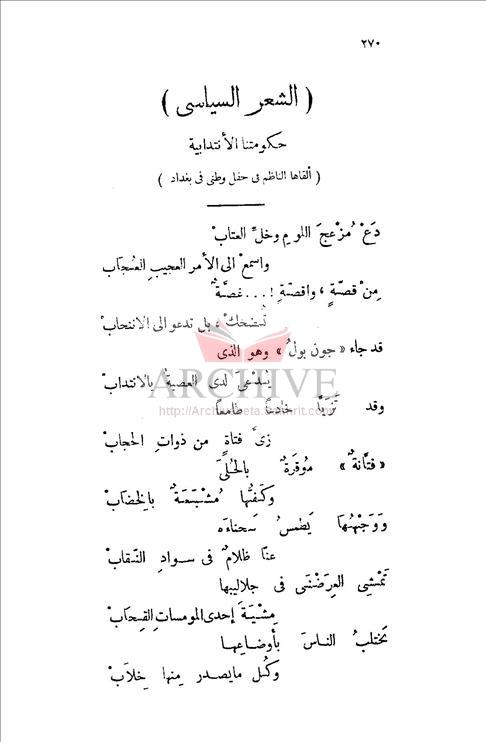 ٢٧٠
( الشعر السياسى )
حكومتنا الأنتدابية
( ألقاها الناظم فى حفل وطنى فى بغداد )
دَعْ مُزعجَ اللومِ وخلِّ العتابْ
واسمعْ الى الأمر العجيبِ العُجابْ
مِنْ قصّةٍ ، واقصّةِ !...غصّةٌ
تُضحكُ ، بل تدعو الى الانتحابْ
قد جاء «جون بولُ» وهو الذى
يُدْعى لدى العصبةِ بالانتدابْ
ARCHIVE
http://Archivebeta.Sakhrit.com
وقد تَزَيَّا خادعاً طامعاً
زىَّ فتاةٍ من ذوات الحجابْ
«فتّانةٌ» مُوقرةٌ بالحُلىَ
وكفُّها مُشْبَعَةٌ بالخضابْ
وَوَجْهُها يَطمسُ سَحناءَه
عنّا ظلامٌ فى سوادِ النّقابْ
تَمْشِى العِرَضْنَى فى جلاليبها
مِشْيَةَ إحدى المومسات القِحابْ
تختلبُ الناسَ بأوضاعِها
وكُل مايصدر مِنها خِلابْ